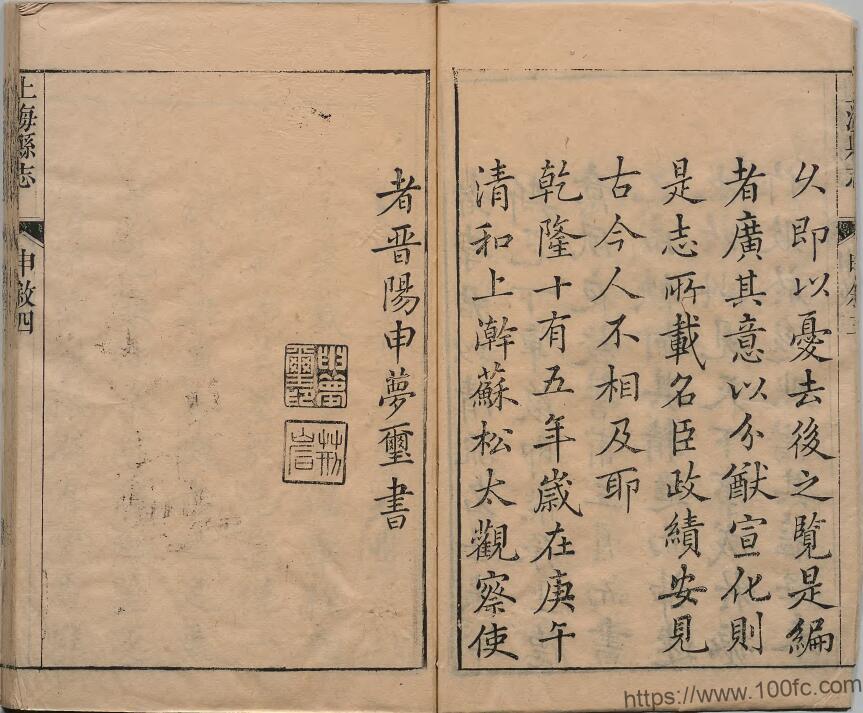 久即以憂去後之覧是編
者廣其意以分猷宣化則
是志所載名臣政績安見
古今人不相及耶
乾隆十有五年歲在庚午
清和上澣蘇松太觀察使
者晋陽申夢璽書
申夢
璽印
上海縣志
申敘四
https://www.100fc.com